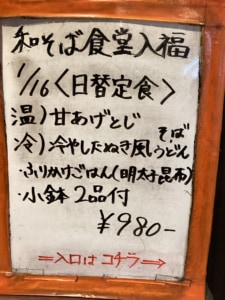 和そば食堂入福
1/16〈日替定食〉
温)甘あげとじ
冷)冷やしたぬき風そばうどん
・ふりかけごはん(明太子昆布)
・小鉢2品付
¥980-
⇒入口はコチラ⇒